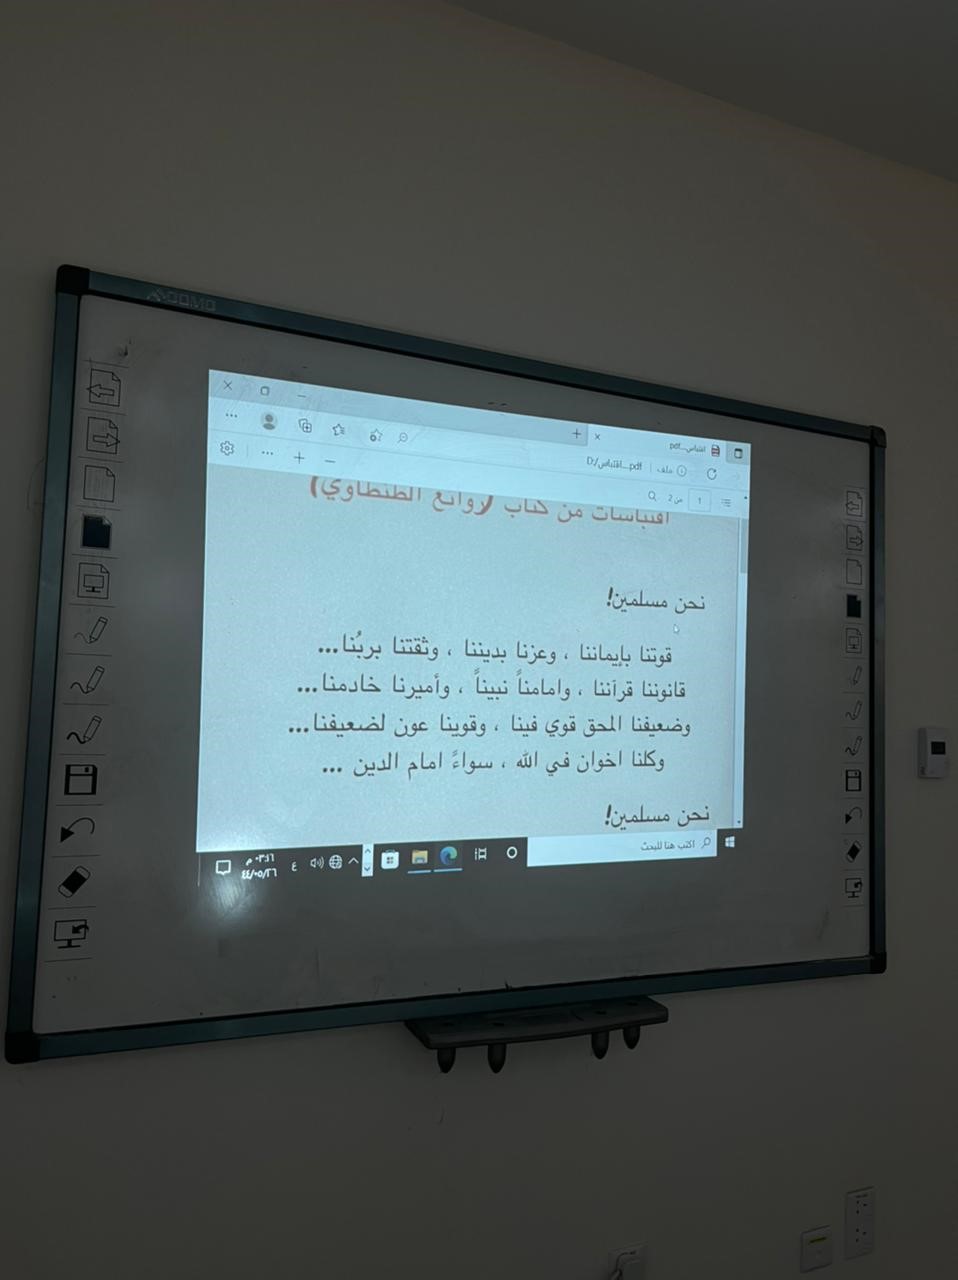 QOMO
اقتباس...pdf
ملف
D:/اقتباس...pdf
1
من 2
اقتباسات من كتاب (روائع الطنطاوي)
نحن مسلمين!
قوتنا بإيماننا ، وعزنا بديننا ، وثقتنا بربُنا...
قانوننا قرآننا ، وامامناً نبيناً ، وأميرنا خادمنا...
وضعيفنا المحق قوي فينا ، وقوينا عون لضعيفنا...
وكلنا اخوان في الله ، سواءً امام الدين ...
نحن مسلمين!
اكتب هنا للبحث
ع
٠٣:١٦ م
٤٤/٠٥/٢٦